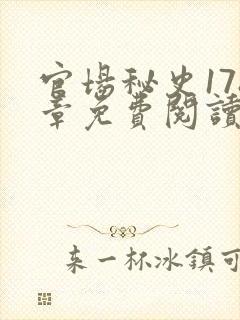 官場秘史17
章免費閱讀
來一杯冰鎮可